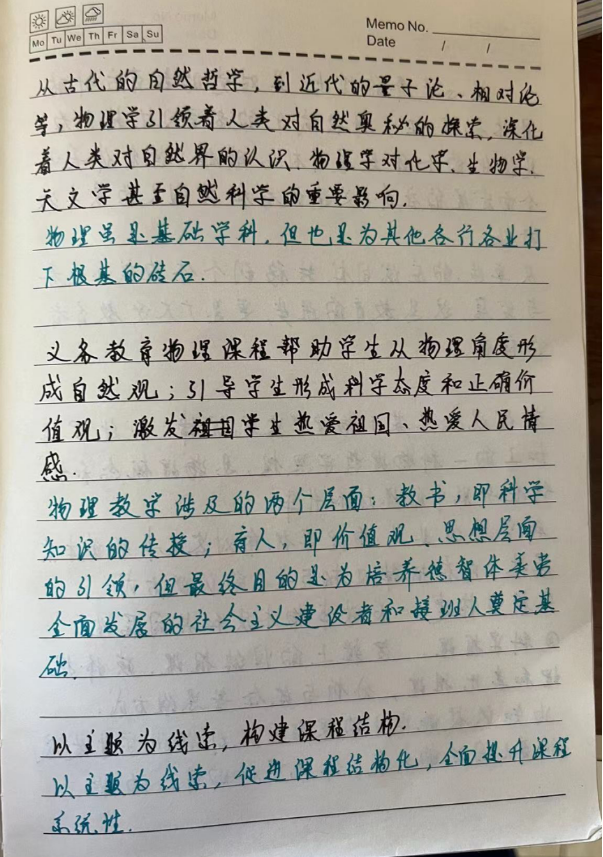 Memo No.
Mo Tu We Th Fr Sa Su
Date / /
从古代的自然哲学，到近代的量子论、相对论
等，物理学引领着人类对自然奥秘的探索，深化
着人类对自然界的认识。物理学对化学、生物学、
天文学甚至自然科学的重要影响。
物理虽是基础学科，但也是为其他各行各业打
下根基的砖石。
义务教育物理课程帮助学生从物理角度形
成自然观；引导学生形成科学态度和正确价
值观；激发祖国学生热爱祖国、热爱人民情
感。
物理教学涉及的两个层面：教书，即科学
知识的传授；育人，即价值观、思想层面
的引领，但最终目的是为培养德智体美劳
全面发展的社会主义建设者和接班人奠定基
础。
以主题为线索，构建课程结构。
以主题为线索，促进课程结构化，全面提升课程
系统性。